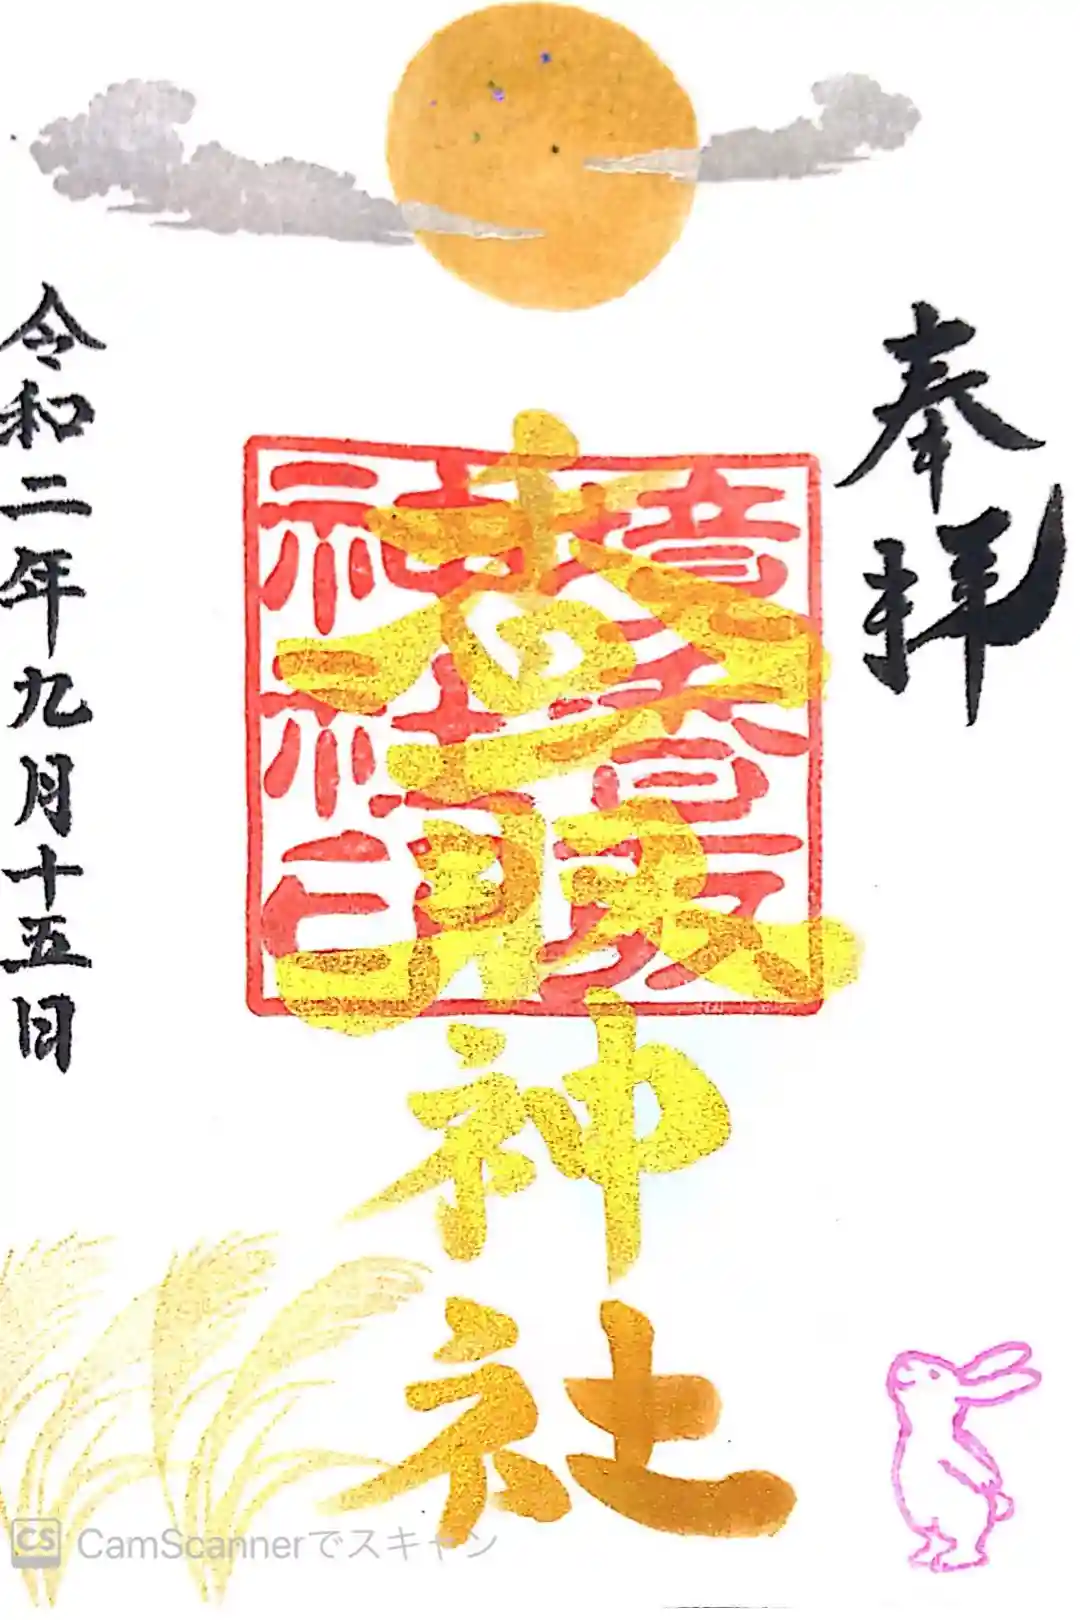 奉拝
香取神社
神社印
令和二年九月十五日
CS CamScannerでスキャン